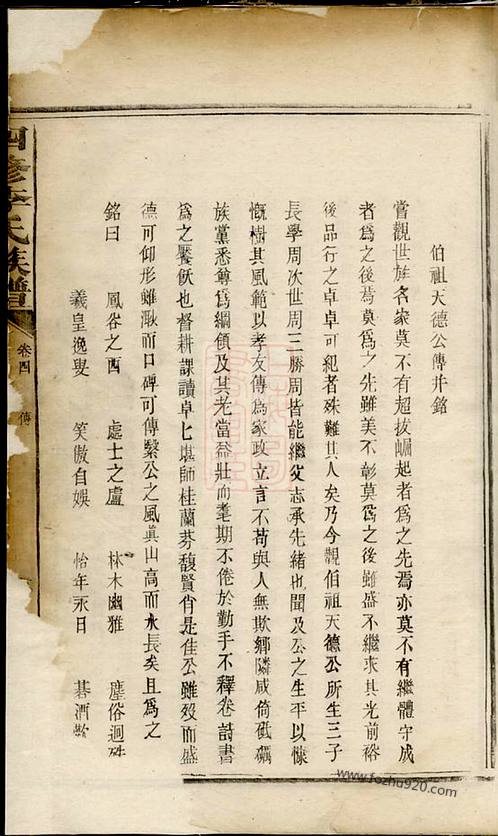 伯祖天德公傳并銘
嘗觀世族名家莫不有超拔崛起者爲之先焉亦莫不有繼體守成
者爲之後焉莫爲之先雖美不彰莫爲之後雖盛不繼求其光前裕
後品行之卓卓可紀者殊難其人矣乃今觀伯祖天德公所生三子
長學周次世周三勝周皆能繼父志承先緒也聞及公之生平以慷
慨樹其風範以孝友傳爲家政立言不苟與人無欺鄉隣咸倚砥礪
族黨悉尊爲綱領及其老當益壯而耄期不倦於勤手不釋卷詩書
爲之饜飫也督耕課讀卓匕堪師桂蘭芬馥賢肖是佳公雖歿而盛
德可仰形雖渺而口碑可傳繄公之風眞山高而水長矣且爲之
銘曰 鳳谷之西 處士之廬 林木幽雅 塵俗迥殊
羲皇逸叟 笑傲自娛 怡年永日 碁酒歡
四修李氏族譜 卷四 傳
www.fozhu920.com